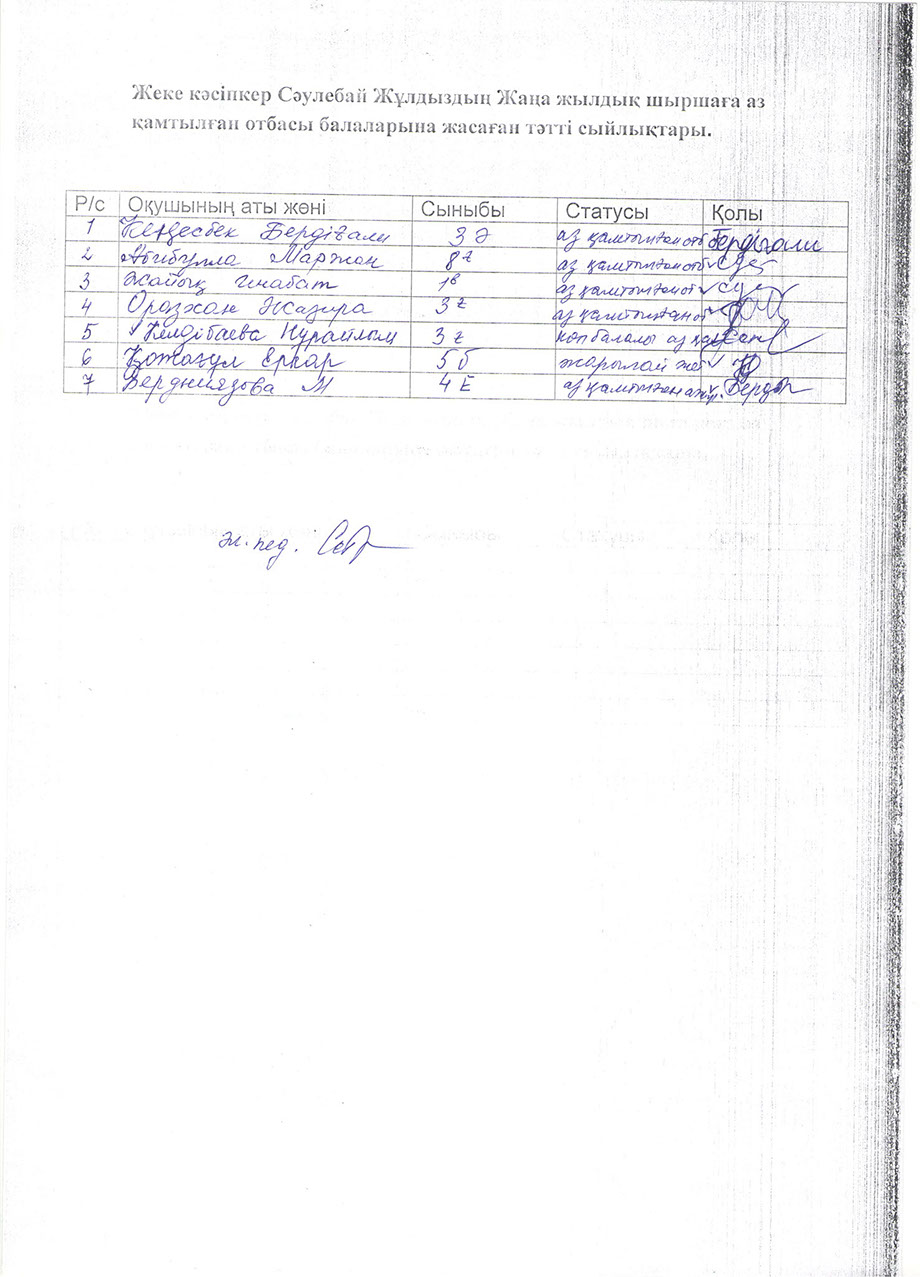 Жеке кәсіпкер Сәулебай Жұлдыздың Жаңа жылдық шыршаға аз
қамтылған отбасы балаларына жасаған тәтті сыйлықтары.
Р/с Оқушының аты жөні Сыныбы Статусы Қолы
1 Кеңесбек Бердіғали 3 Ә аз қамтылған отб Бердіғали
2 Абибулла Маржан 8 г аз қамтылған отб
3 Жайық Гнабат 1 в аз қамтылған от
4 Оразхан Жазира 3 г аз қамтылған от
5 Келдібаева Нурайлым 3 г көпбалалы аз қам
6 Қожағұл Еркар 5 б жарылай же
7 Бердниязова М 4 Е аз қамтылған
ж. пед.